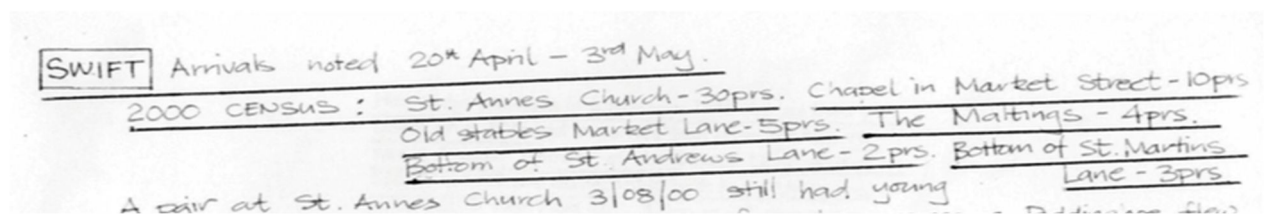 SWIFT Arrivals noted 20th April - 3rd May.
2000 CENSUS : St. Annes Church - 30prs. Chapel in Market Street - 10prs
Old stables Market Lane - 5prs. The Maltings - 4prs.
Bottom of St. Andrews Lane - 2prs. Bottom of St. Martins
Lane - 3prs
A pair at St. Annes Church 3/08/00 still had young
flew